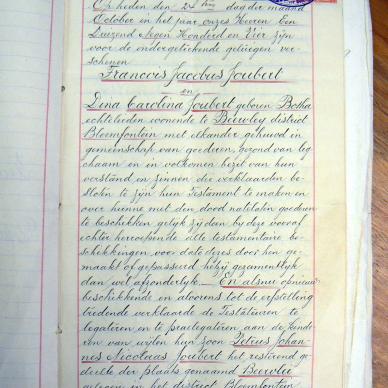 Op heden den 24sten dag der maand
October in het jaar onzes Heeren Een
Duizend Negen Honderd en Vier zijn
voor de ondergetekende getuigen ver-
schenen
Francois Jacobus Joubert
en
Dina Carolina Joubert geboren Botha
echtelieden wonende te Beervley district
Bloemfontein met elkander gehuwd in
gemeenschap van goederen, gezond van lig-
chaam en in volkomen bezit van hun
verstand en zinnen die verklaarden be-
sloten te zijn hun Testament te maken en
over hunne met den dood natelaten goederen
te beschikken gelijk zij doen bij deze vooraf
echter herroepende alle testamentaire be-
schikkingen voor date dezes door hen ge-
maakt of gepasseerd hetzij gezamentlijk
dan wel afzonderlijk. En alsnu opnieuw
beschikkende en alvorens tot de erfstelling
tredende verklaarde de Testateuren te
legateeren en te praelegateeren aan de kinde-
ren van wijlen hun zoon Petrus Johan-
nes Nicolaas Joubert het resteerend ge-
deelte der plaats genaamd Beervlei
gelegen in het district Bloemfontein